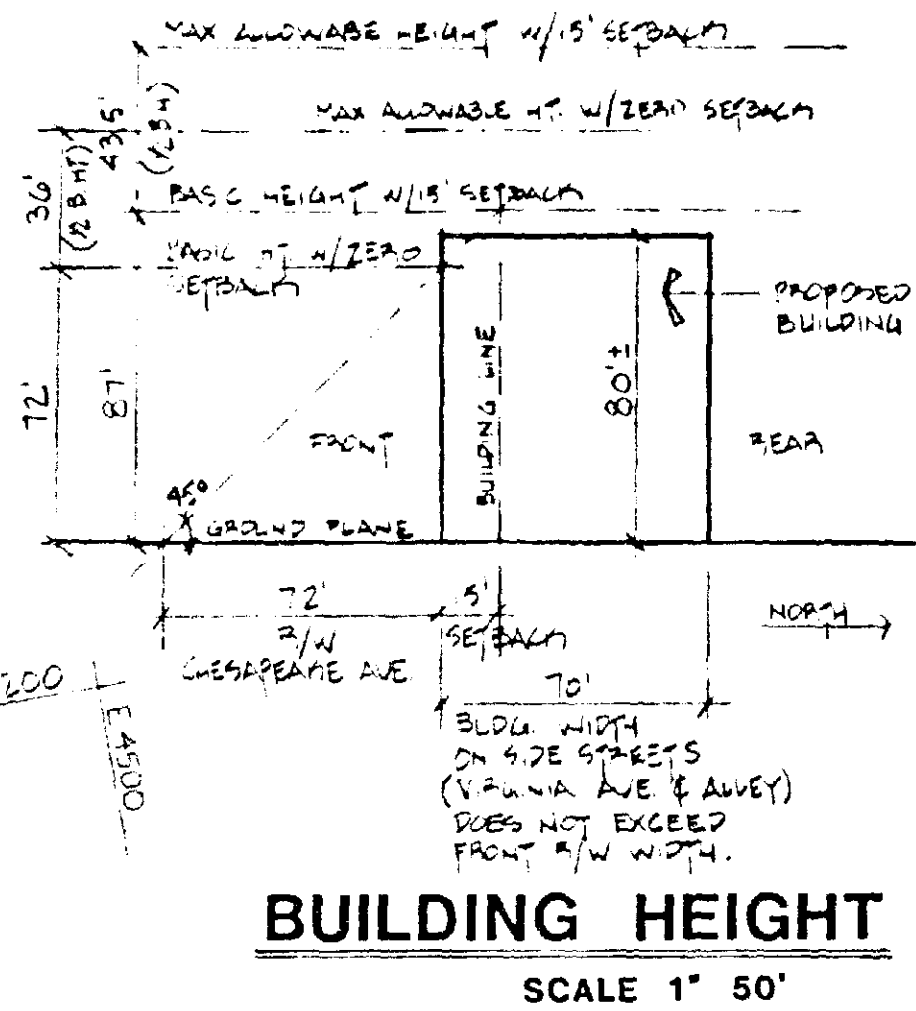 MAX ALLOWABE HEIGHT W/15' SETBACK
MAX ALLOWABLE HT. W/ZERO SETBACK
36'
(1/2 B HT)
43 5'
(1/2 B H)
BASIC HEIGHT W/15' SETBACK
BASIC HT W/ZERO
SETBACK
PROPOSED
BUILDING
72'
87'
BUILDING LINE
80'±
FRONT
REAR
45°
GROUND PLANE
72'
R/W
CHESAPEAKE AVE
5'
SETBACK
NORTH
200
E 4500
70'
BLDG. WIDTH
ON SIDE STREETS
(VIRGINIA AVE. & ALLEY)
DOES NOT EXCEED
FRONT R/W WIDTH.
BUILDING HEIGHT
SCALE 1" 50'